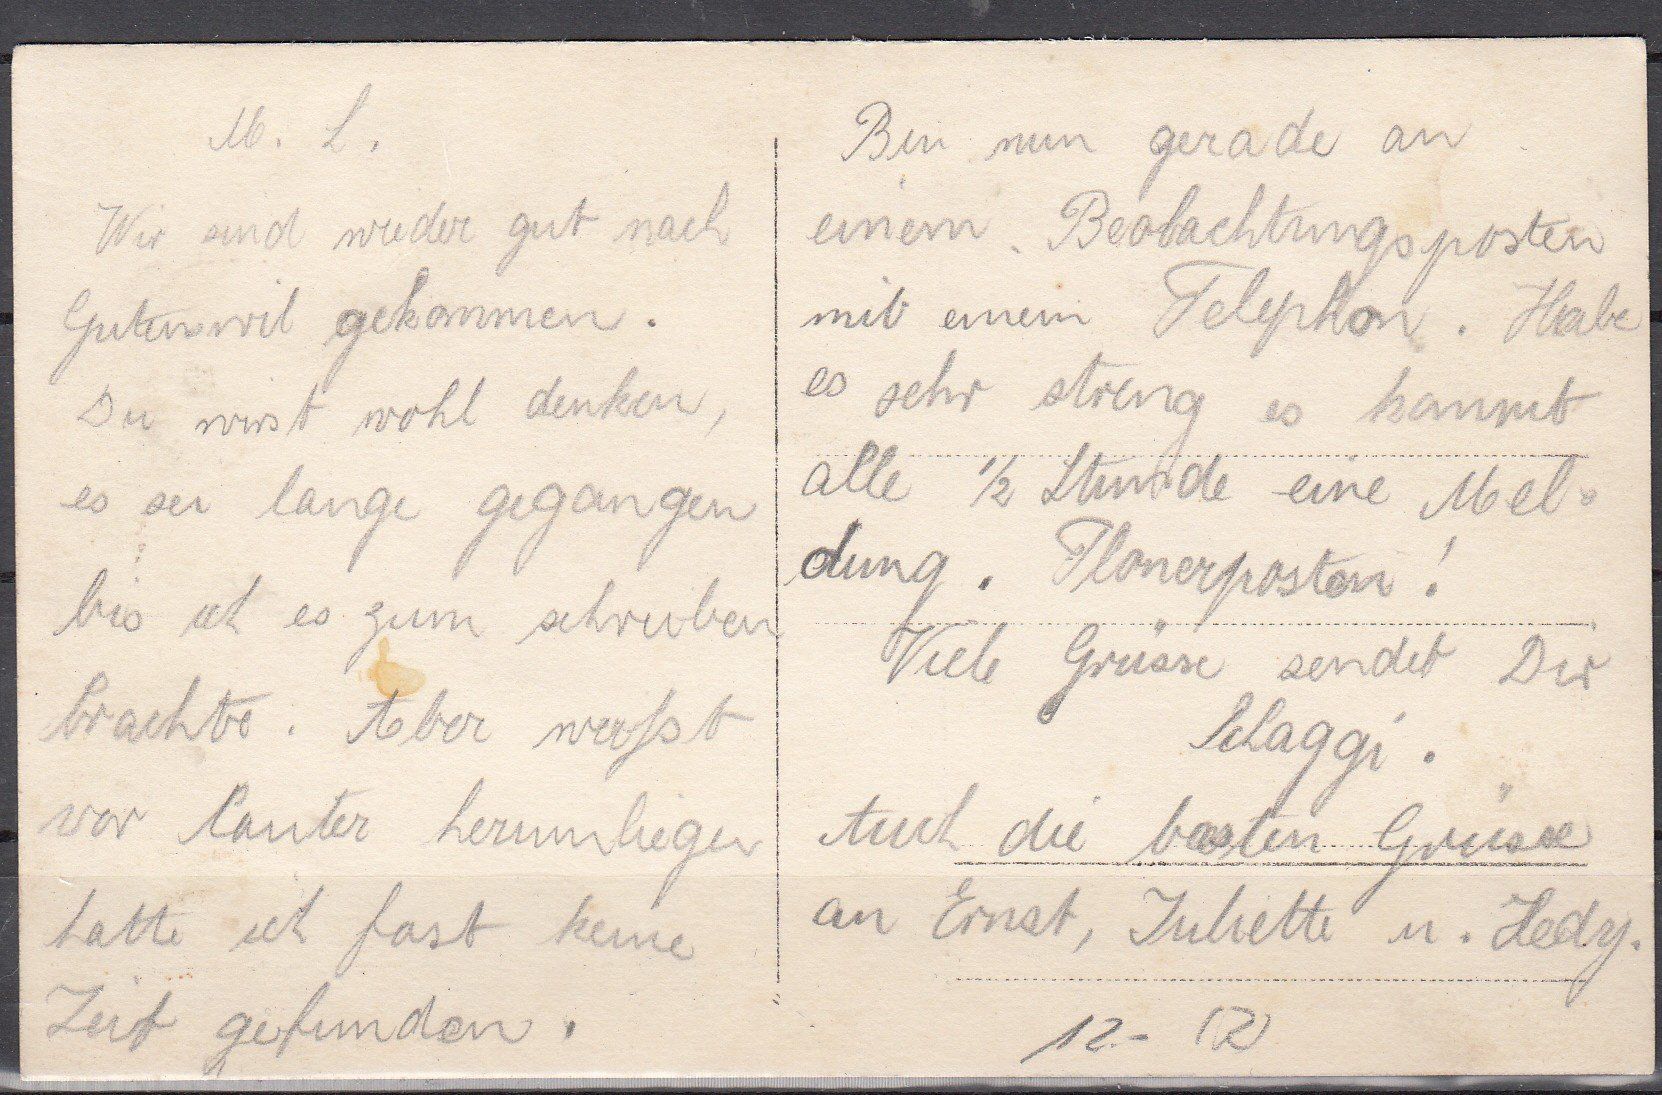 M. L.
Wir sind wieder gut nach
Gutenswil gekommen.
Du wirst wohl denken,
es sei lange gegangen
bis ich es zum schreiben
brachte. Aber weisst
vor lauter herumliegen
hatte ich fast keine
Zeit gefunden.
Bin nun gerade an
einem Beobachtungsposten
mit einem Telephon. Habe
es sehr streng es kommt
alle 1/2 Stunde eine Mel-
dung. Plonerposten!
Viele Grüsse sendet Dir
Schaggi.
Auch die besten Grüsse
an Ernst, Juliette u. Hedy.
12.- (2)